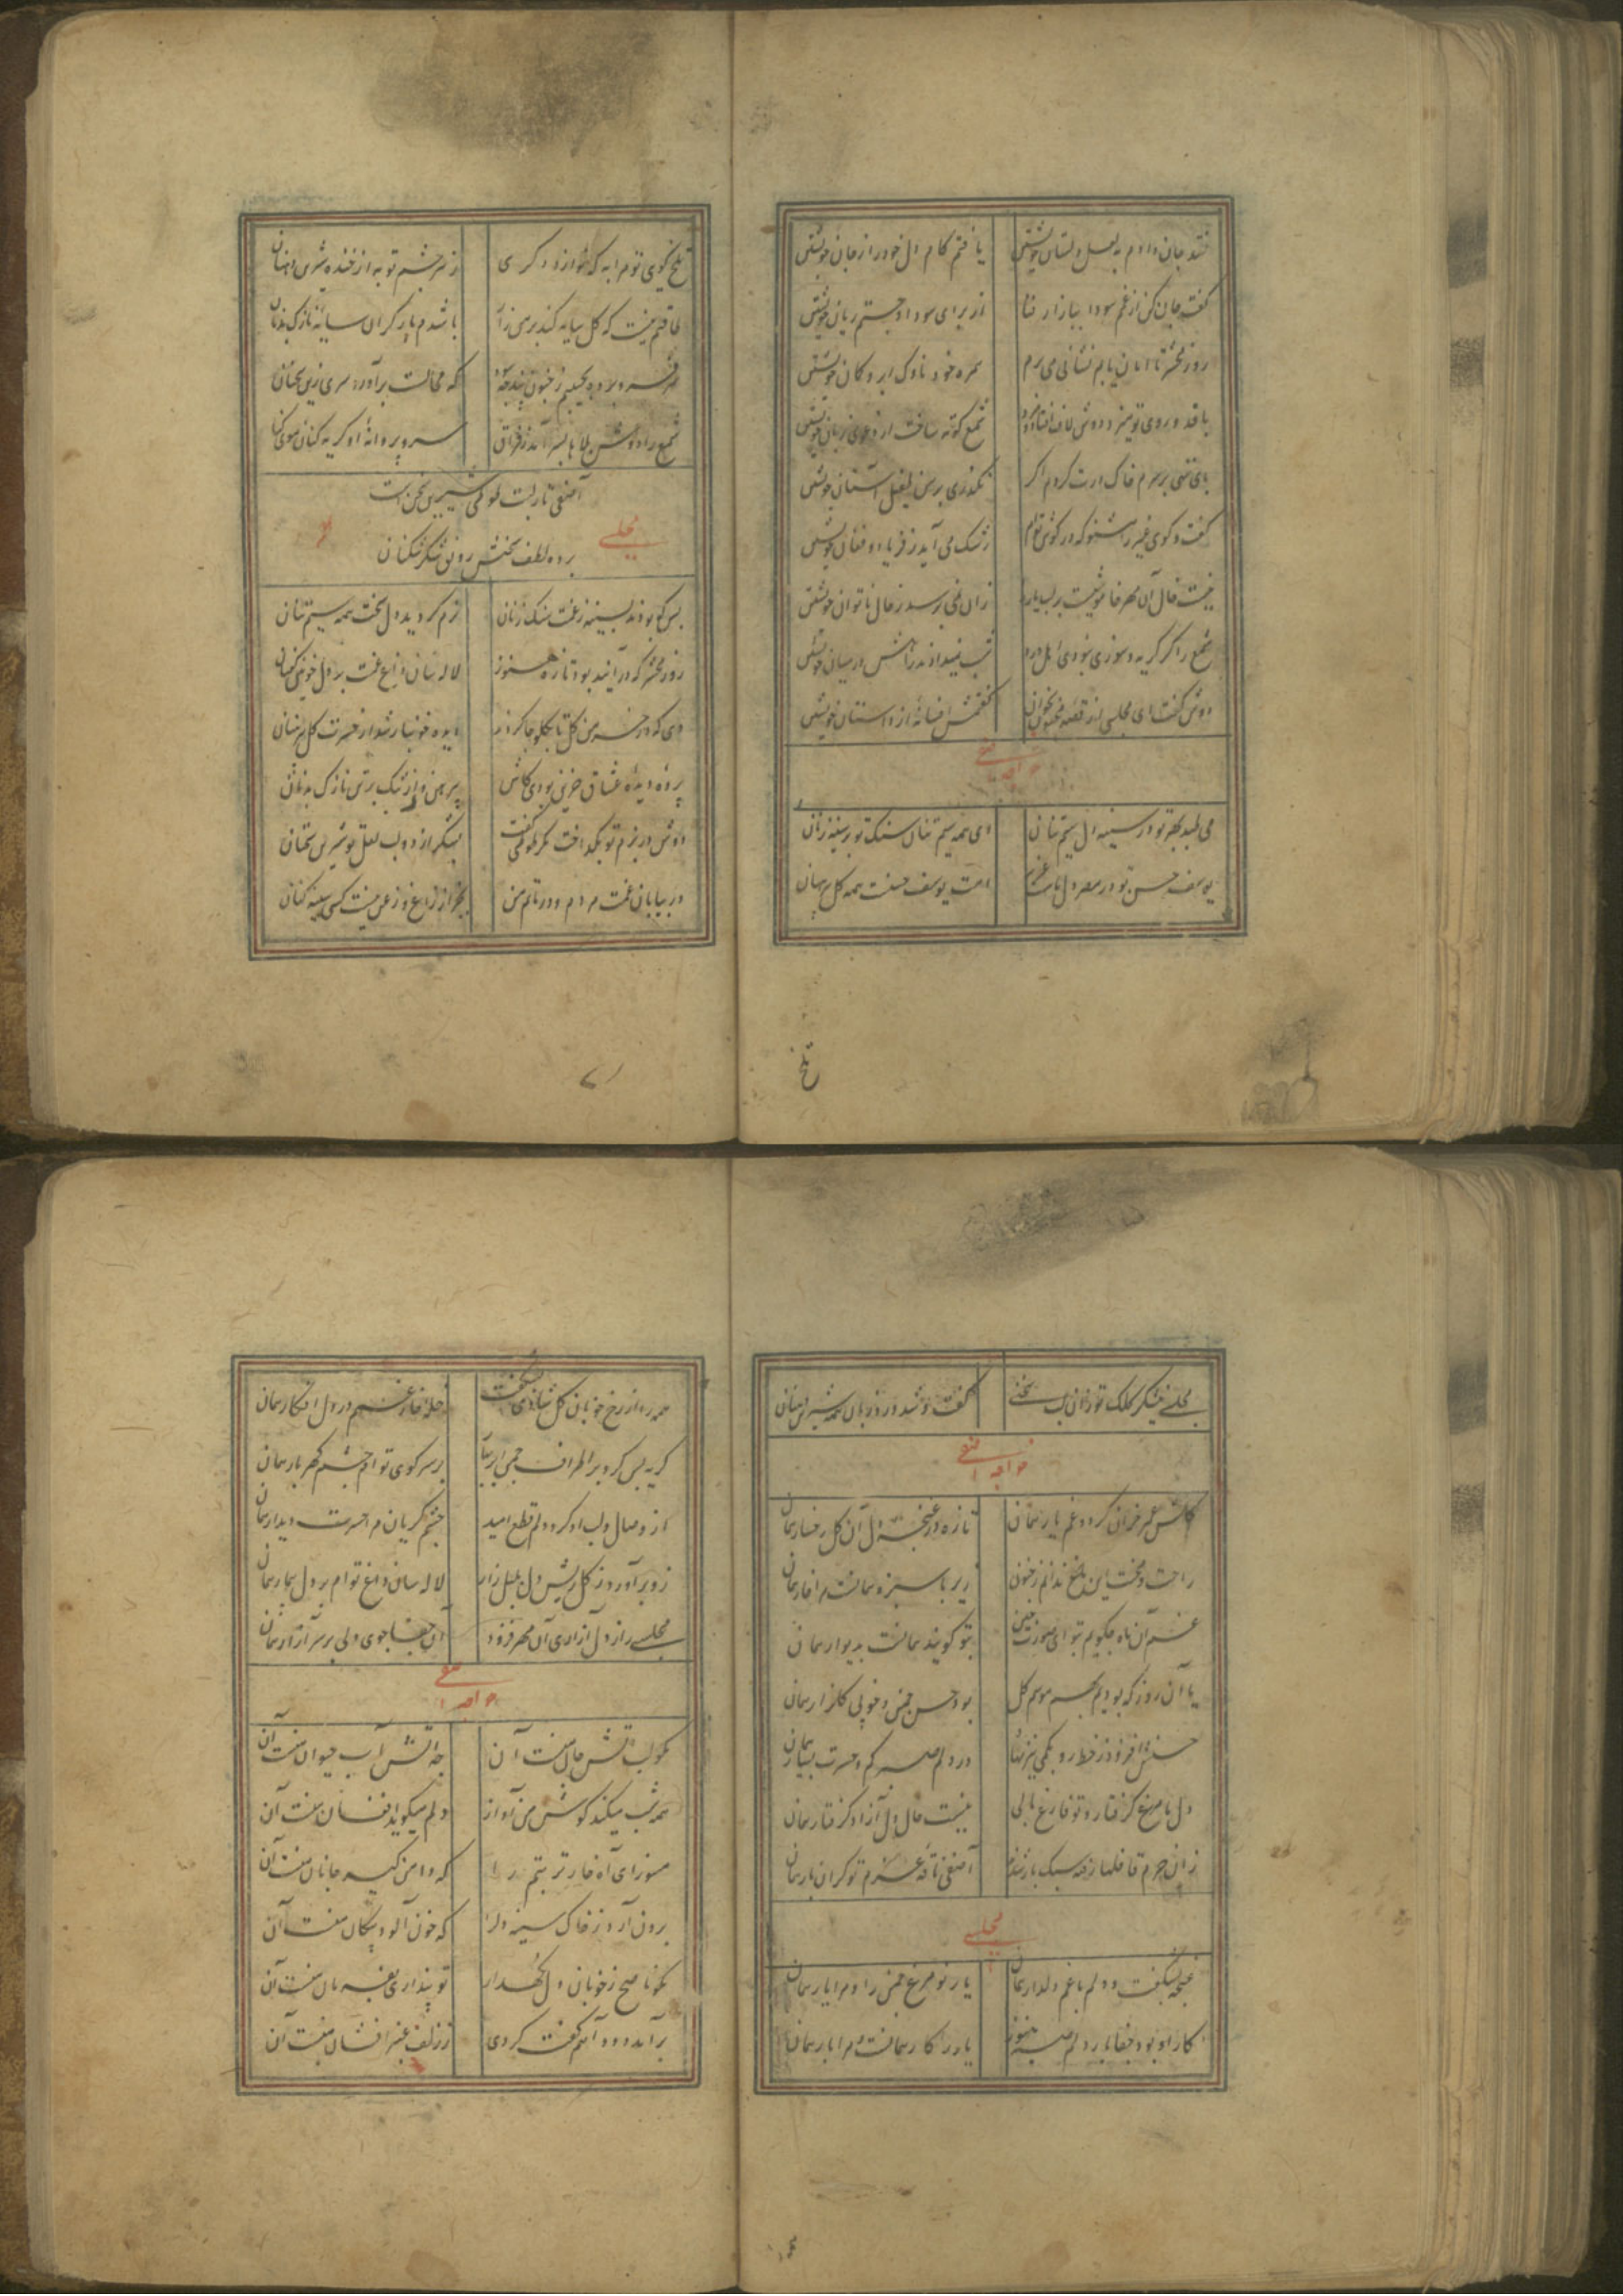 نقد جان دادم به لعل دلستان خویشتن یافتم کام دل خود را ز جان خویشتن
گفت جان کن از غم سودا ببازار فنا از برای سود او جستم زیان خویشتن
روز محشر تا امان یابم نشانی می برم همره خود ناوک ابرو کمان خویشتن
با قد و روی تو میزد دوش لاف شمع کوته ساخت از دعوی زبان خویشتن
پای ننهی بر سرم خاک درت کردم اگر نگذری بر من طفیل آستان خویشتن
گفت و گوی غیر را مشنو که در کوی توام رشک می آید ز فریاد و فغان خویشتن
نیست خال آن مهر خاموشیست بر لب زان نمی پرسد ز حال ناتوان خویشتن
شمع را گر گریه و سوزی نبودی شب در میان خویشتن
دوش گفت ای مجلسی از قصه مجنون بخوان گفتمش افسانه از داستان خویشتن
خواجه آصفی
می طپد بهر تو در سینه دل سیم تنان ای همه سیم تنان سنگ تو بر سینه زنان
یوسف حسن تو در مصر دل ماست عزیز امت یوسف حسنت همه گل پیرهنان
تلخ
تلخ گوی تو مرا به که شوم از دگری زهر چشم تو به از خنده شیرین دهنان
طاقتم نیست که گل سایه کند بر سر من باشدم بار گران سایه نازک بدنان
که مجالست برآورد سری زین سخنان
شمع را دوش بلاها بسر آمد ز فراق سر پروانه او گریه کنان موی کنان
آصفی تا ز لبت طوطی شیرین سخن است
مجلسی
برده لطف سخنش رونق شکر شکنان
بس که بودند بسینه ز غمت سنگ زنان نرم گردید دل سخت همه سیم تنان
روز محشر که در آیند بود تازه هنوز لاله سان داغ غمت بر دل خونین کفنان
دیده خونبار شد از حسرت گل پیرهنان
پرده دیده عشاق حزین بودی کاش پیرهن از تنک بر تن نازک بدنان
دوش در بزم تو بگداخت مگر طوطی گفت شکر از دو لب لعل تو شیرین سخنان
در بیابان غمت مردم و در ماتم من بجز از زاغ و زغن نیست کسی سینه کنان
مجلسی نیشکر کلک تو زان لب سخنی گفت و شد ورد زبان همه شیرین دهنان
خواجه آصفی
کاش عمر خزان گردد و غم یار همان تازه در غنچه دل آن گل رخسار همان
راحت و محنت این باغ ندانم ز جنون زیر پا سبزه همانست مرا خار همان
غم آن ماه چگویم بتو ای صورت چین بتو گویند همانست بدیوار همان
یا آن روز که بودیم بهم موسم گل بود حسن چمن و خوبی گلزار همان
در دلم صبر کم و حسرت بسیار همان
دل ما مرغ گرفتار و تو فارغ بالی نیست حال دل آزاد و گرفتار همان
زان حرم قافلها رفته سبک بار شدند آصفی ناقه عزم تو گران بار همان
مجلسی
غنچه بشکفت و دلم با غم دلدار همان یار نو مرغ چمن را و مرا یار همان
کار او بود جفا با دلم هنوز یار در کار همانست و مرا کار همان
همه را از رخ خوبان گل شادی بشکفت خله خار غم در دل افگار همان
گریه بس کرد بر اطراف چمن ابر بر سر کوی توام چشم گهربار همان
از وصال لب او کرد دلم قطع امید چشم گریان مرا حسرت دیدار همان
لاله سان داغ توام بر دل بیمار همان
مجلسی را ز دل آزاری آن مهر فزود آن جفا جوی ولی بر سر آزار همان
خواجه آصفی
مگو لب آتش جان منست آن چه آتش آب حیوان منست آن
همه شب میکند گوش من آواز دلم میگوید افغان منست آن
مسوز ای آه خار تربتم را که دامن گیر جانان منست آن
برون آرد ز خاک سینه دل را که خون آلود پیکان منست آن
مگو ناصح ز خوبان دل نگهدار تو پنداری بفرمان منست آن
برآمد دود آهم گفت گردی ز زلف عنبر افشان منست آن